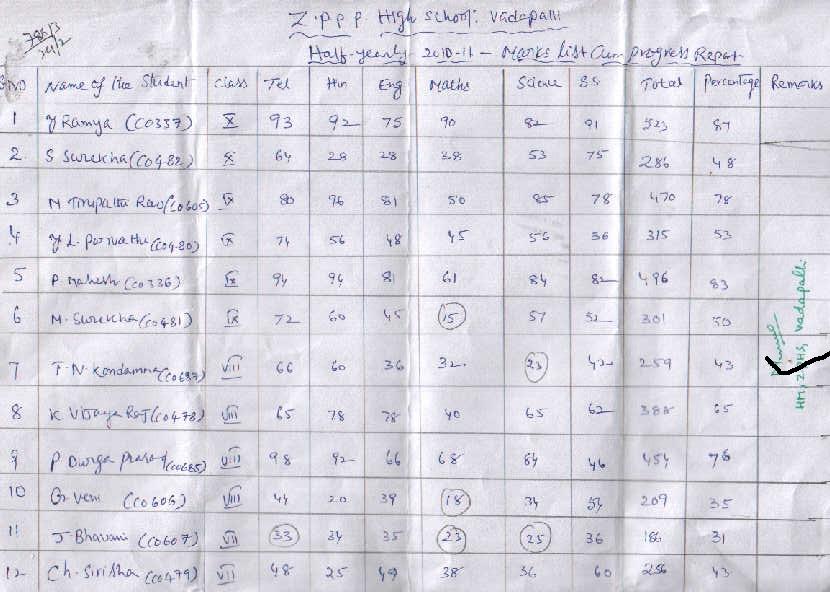 786/3
Z.P.P.P High School: Vadapalli
Half-yearly 2010-11 - Marks List Cum progress Report
S.No Name of the Student Class Tel Hin Eng Maths Science S.S Total Percentage Remarks
1 Y Ramya (C0337) X 93 92 75 90 82 91 523 87
2 S Surekha (C0482) X 64 28 28 38 53 75 286 48
3 N Tirupathi Rao (C0605) IX 80 96 81 50 85 78 470 78
4 Y L. Parvathi (C0480) IX 74 56 48 45 56 36 315 53
5 P Mahesh (C0336) IX 94 94 81 61 84 82 496 83
6 M. Surekha (C0481) IX 72 60 45 15 57 52 301 50
7 T. N. Kondamma (C0687) VIII 66 60 36 32 23 42 259 43
8 K Vijaya Raj (C0478) VIII 65 78 78 40 65 62 388 65
9 P Durga Prasad (C0685) VIII 98 92 66 68 84 46 454 76
10 G. Veni (C0606) VIII 44 20 39 18 34 54 209 35
11 J. Bhavani (C0607) VII 33 34 35 23 25 36 186 31
12 Ch. Sirisha (C0479) VII 48 25 49 38 36 60 256 43
HM, ZPHS, Vadapalli